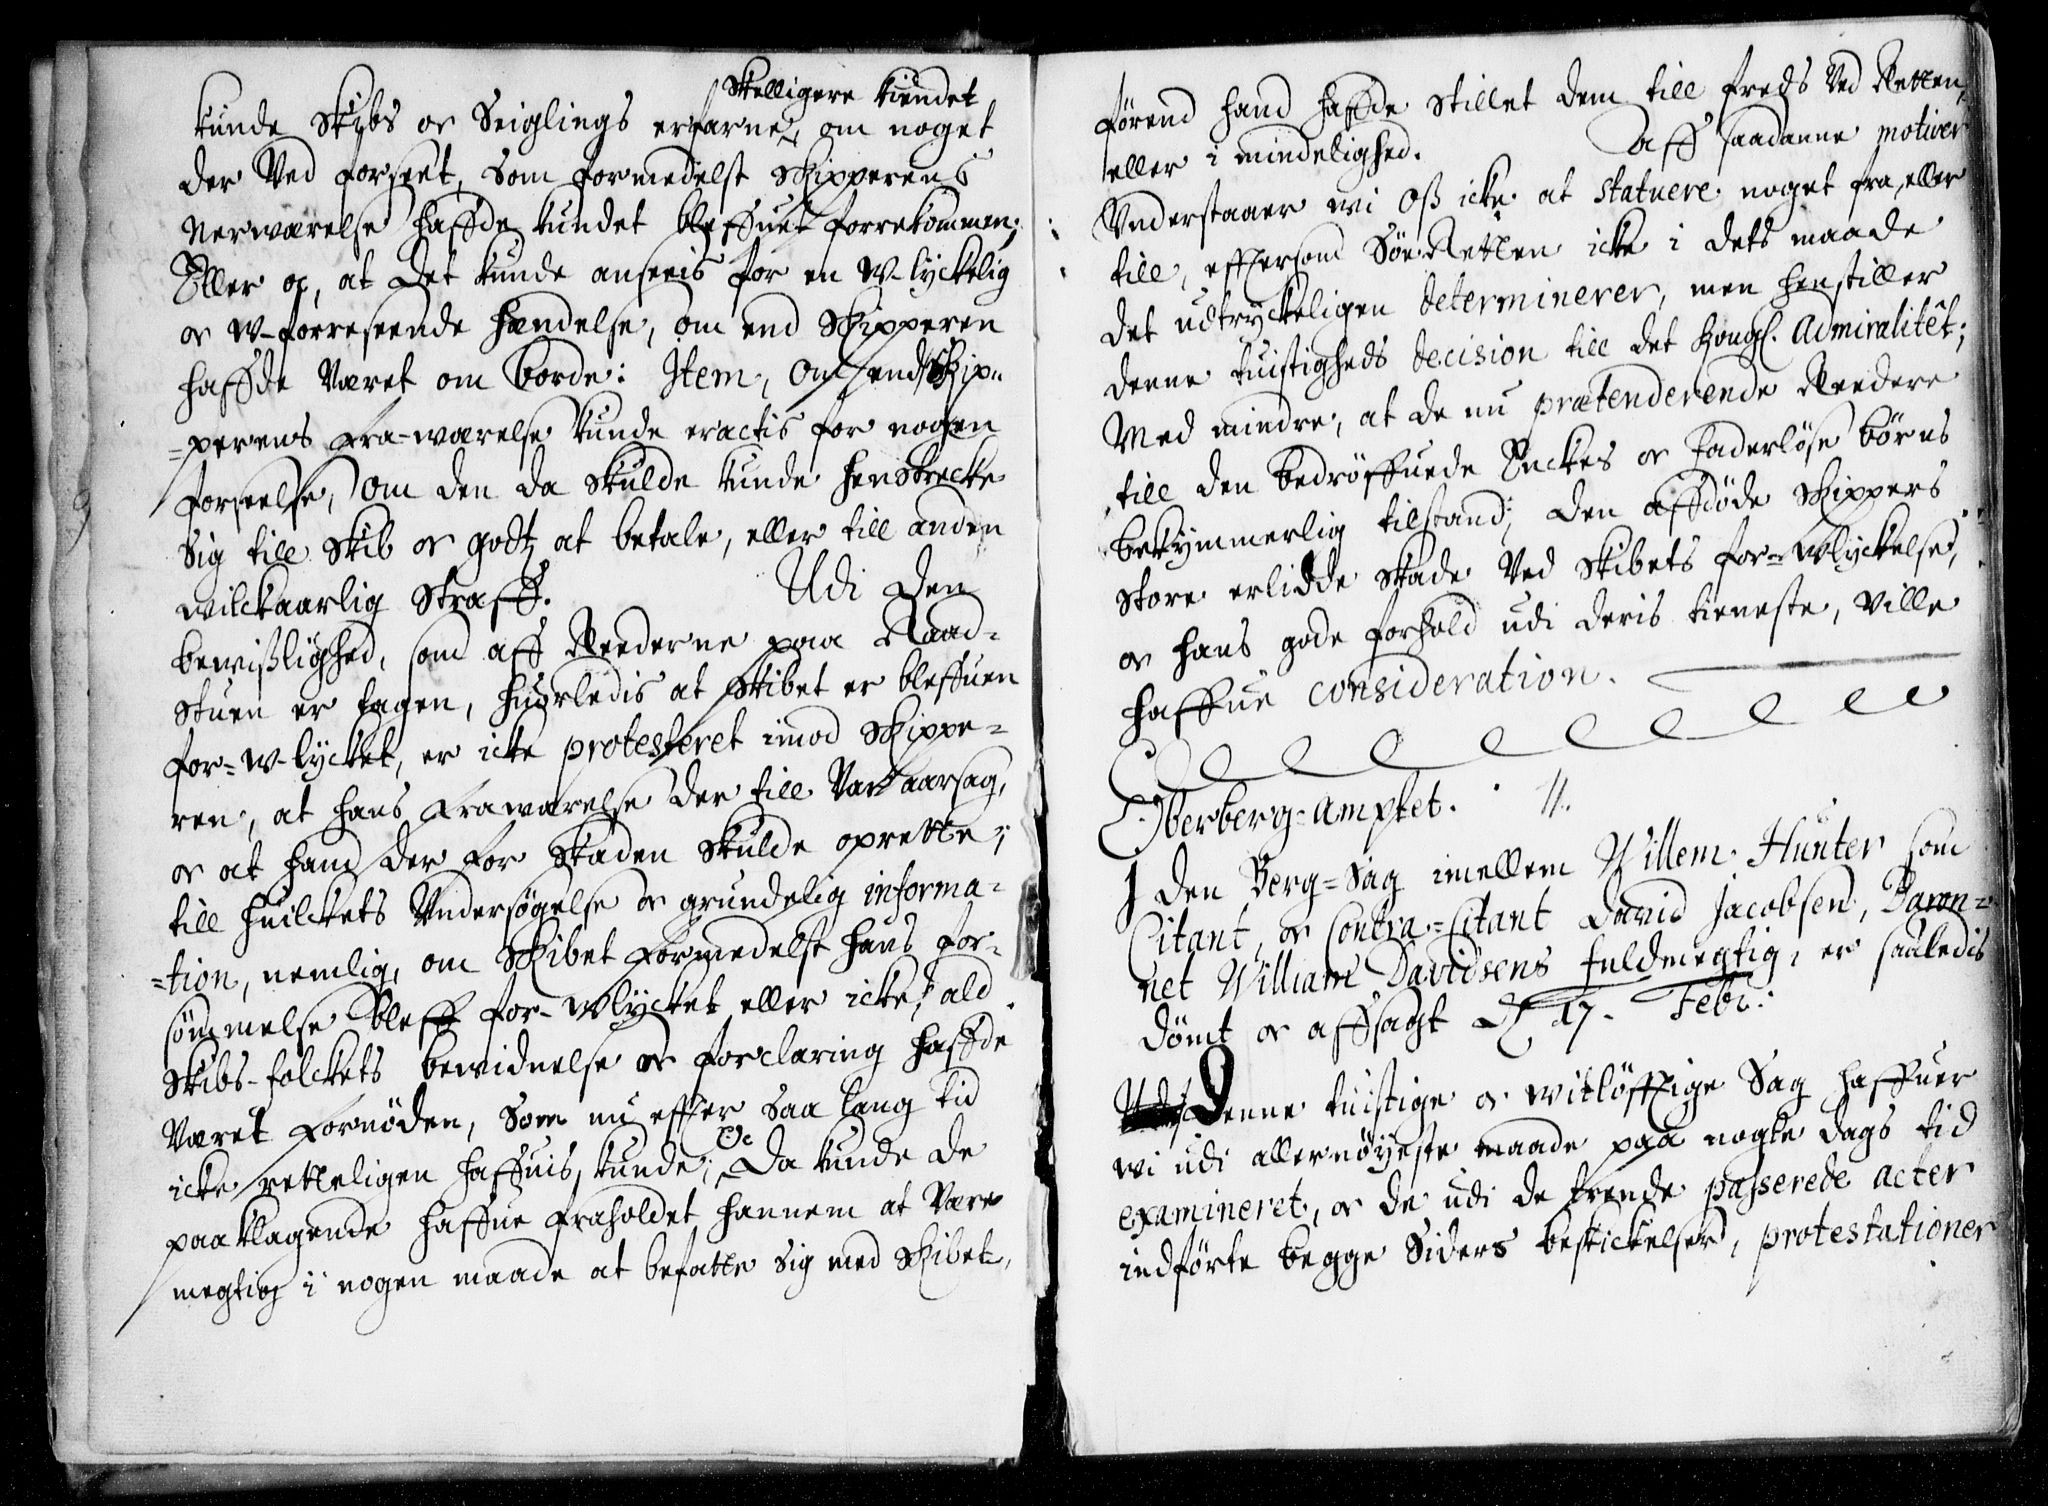 skelligere kiendet
kunde Skibs oc Seiglings erfarne, om noget
der Ved forseet, som formedelst Skipperens
Nerwærelse haffde kundet bleffuet forrekommen;
Eller oc, at det kunde ansees for en w-lyckelig
oc w-forreseende hændelse, om end Skipperen
haffde Været om borde: Item, om end Skip-
=perens fra-wærelse kunde eractis for nogen
forseelse, om den da skulde kunde henstrecke
sig till Skib oc godtz at betale, eller till anden
wilckaarlig Straff. Udi den
bewißlighed, som aff Reederne paa Raad-
stuen er tagen, huorledis at Skibet er bleffuen
for-w-lycket, er icke protesteret imod Skippe-
ren, at hans frawærelse der till Var aarsag,
oc at hand der for Skaden skulde oprette;
till huilckets Vndersøgelse oc grundelig informa-
=tion, nemlig, om Skibet formedelst hans for-
sømmelse bleff for-wlycket eller icke, ald
Skibs-folckets bewidnelse oc forclaring haffde
Været fornøden, som nu effter saa lang tid
icke retteligen haffuis kunde; Oc Da kunde de
paaklagende haffue fraholdet hannem at Være
megtig i nogen maade at befatte sig med Skibet,
førend hand haffde stillet dem till freds Ved Retten,
eller i mindelighed. Aff saadanne motiver
Vnderstaaer wi oß icke at statuere noget fra, eller
till, effersom Søe-Retten icke i dets maade
det udtryckeligen determinerer, men henstiller
denne tuistigheds decision till det Kongl. Admiralitet;
Med mindre, at de nu prætenderende Reedere
till den bedrøffuede Enckes oc faderløse børns
bekymmerlig tilstand, den affdøde Skippers
store erlidde skade Ved Skibets for-wlyckelse,
oc hans gode forhold udi deris tieneste, ville
haffue consideration.
Oberberg-amptet. 11.
I den Berg-Sag imellem Willem Hunter som
Citant, oc Contra-Citant David Jacobsen, Baron-
net William Davidsens fuldmegtig, er saaledis
dømt oc affsagt D 17. Febr:
Denne tuistige oc witløfftige Sag haffuer
wi udi allernøyeste maade paa nogle dags tid
examineret, oc de udi de trende passerede acter
indførte begge Siders beskickelser, protestationer